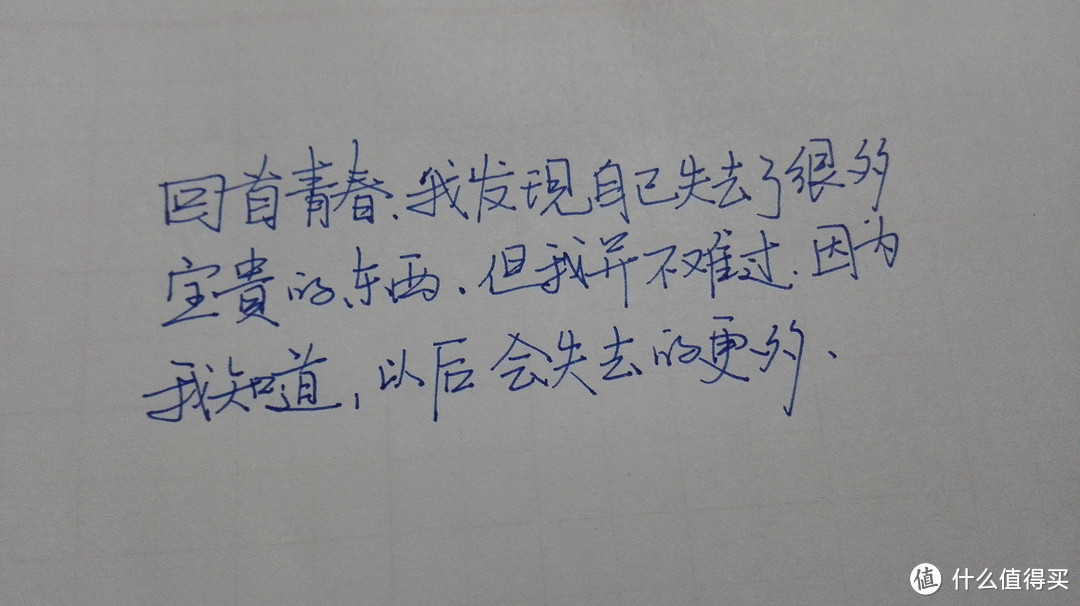 回首青春、我发现自己失去了很多
宝貴的东西、但我并不难过、因为
我知道，以后会失去的更多、
值 什么值得买